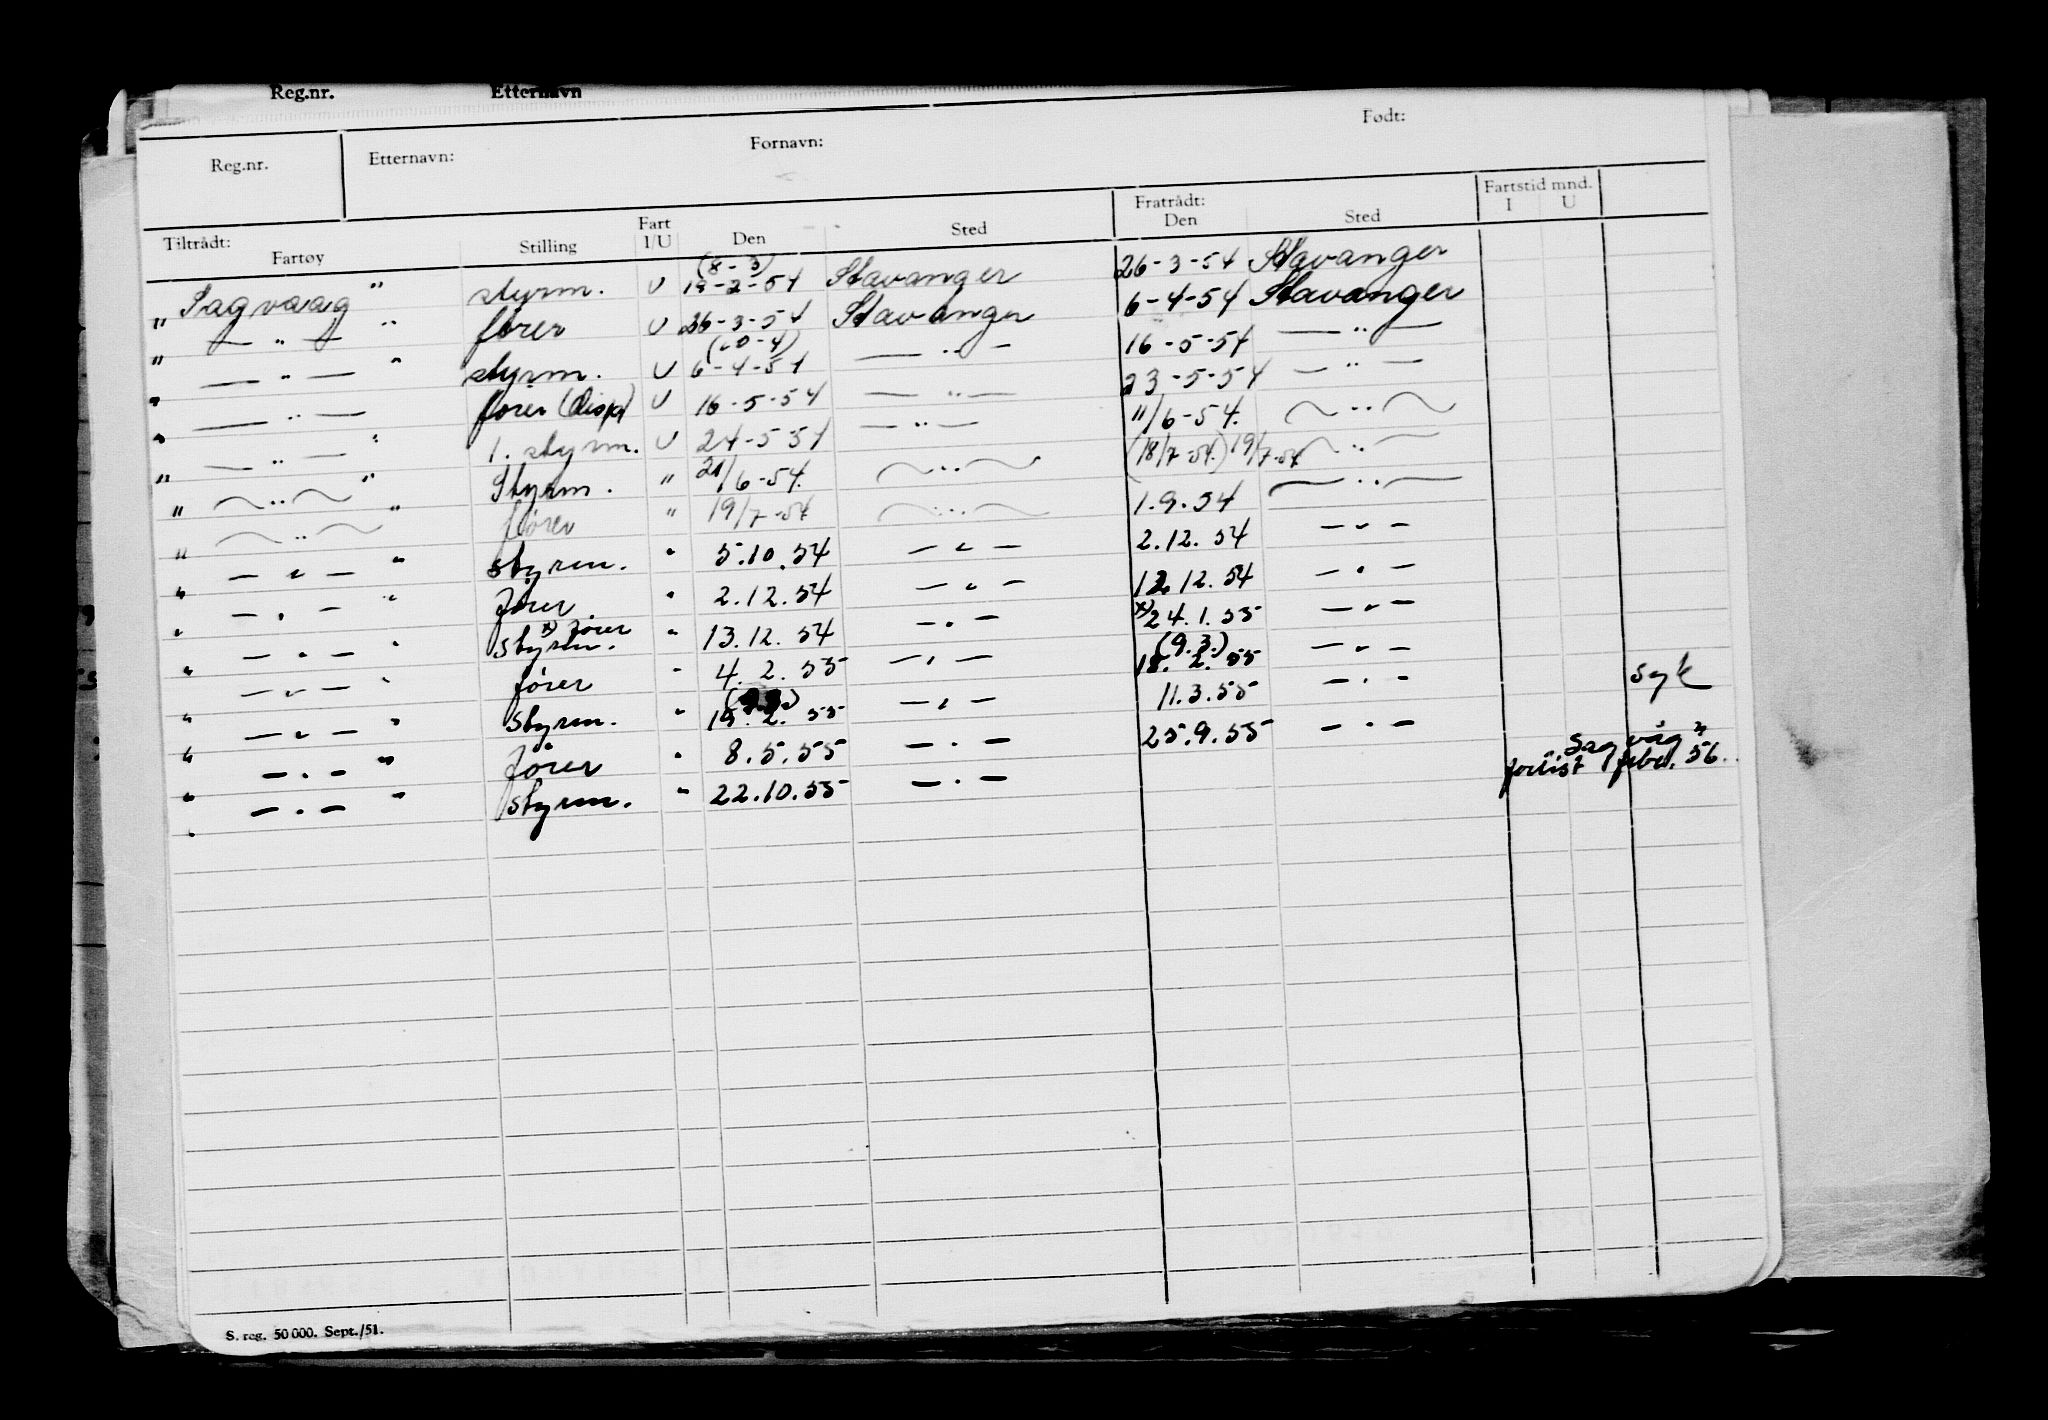 Reg.nr. Etternavn
Reg.nr. Etternavn: Fornavn: Født:
Tiltrådt: Fratrådt: Fartstid mnd.
Fartøy Stilling Fart I/U Den Sted Den Sted I U
(8-3)
"Sagvaag" styrm. U 19-2-54 Stavanger 26-3-54 Stavanger
" — " — " fører U 26-3-54 Stavanger 6-4-54 Stavanger
" — " — " styrm. U 6-4-54 — " — 16-5-54 — " —
" — " — fører (disp) U 16-5-54 — " — 23-5-54 — " —
" — " — " 1. styrm. U 24-5-54 — " — "/6-54. — " —
" — " — " Styrm. " 21/6-54. — " — (18/7-54.) 19/7-54 — " —
" — " — " fører " 19/7-54 — " — 1.9.54 — " —
" — " — " styrm. " 5.10.54 — " — 2.12.54 — " —
" — " — " fører " 2.12.54 — " — 12.12.54 — " —
x) fører
" — " — " styrm. " 13.12.54 — " — x) 24.1.55 — " —
(9.3.)
" — " — " fører " 4.2.55 — " — 18.2.55 — " —
" — " — " styrm. " 19.2.55 — " — 11.3.55 — " — syk
" — " — " fører " 8.5.55 — " — 25.9.55 — " —
" — " — " styrm. " 22.10.55 — " — "Sagvåg"
forlist febr. 56.
S. reg. 50 000. Sept./51.